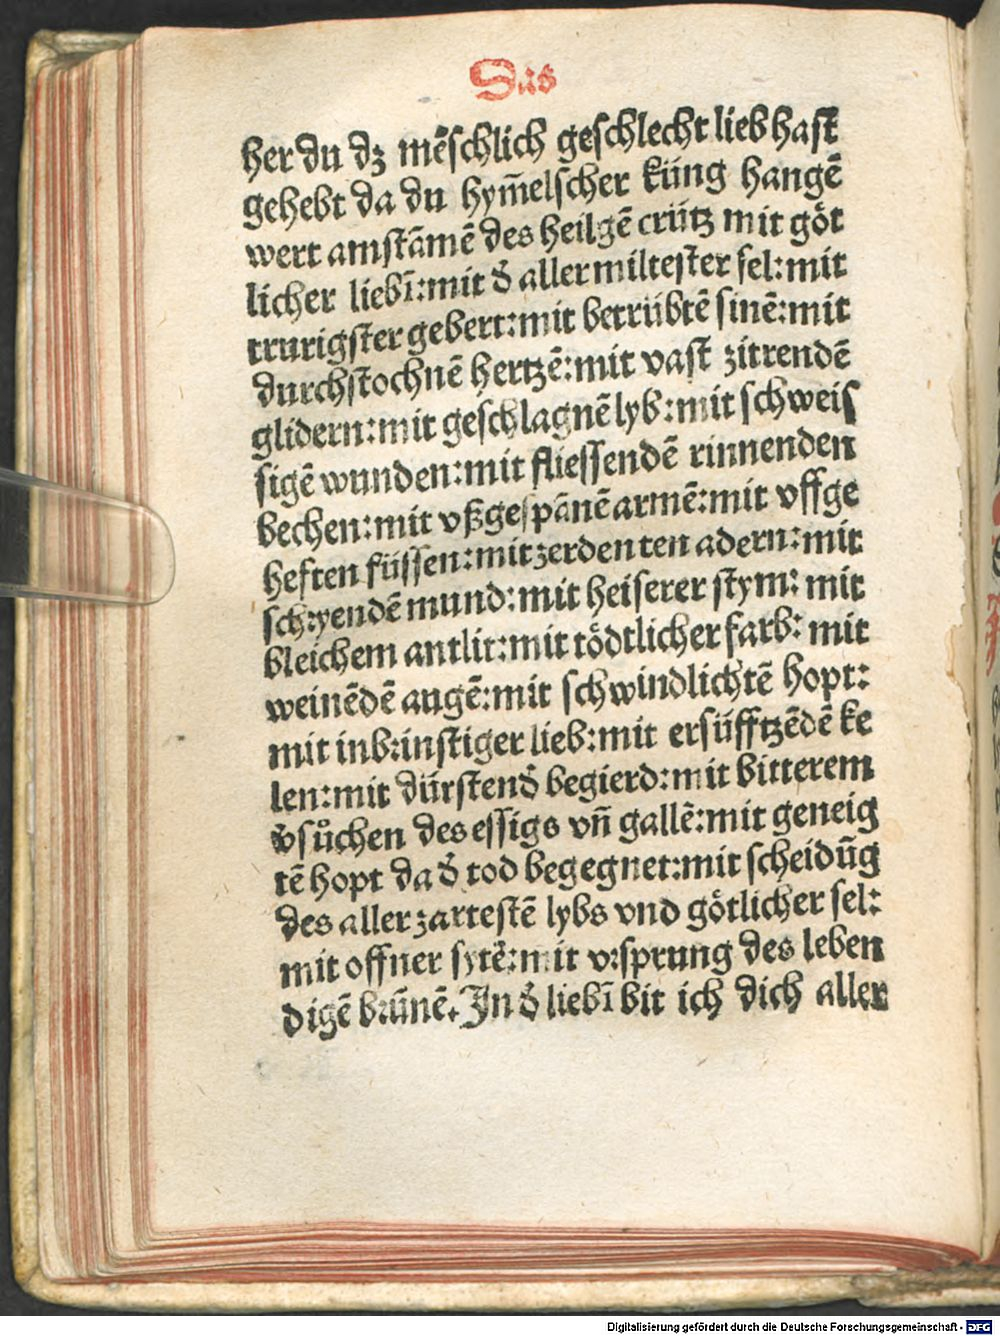 Das
her du dz mēschlich geschlecht lieb hast
gehebt da du hym̄elscher küng hangē
wert am stāmē des heilgē crütz mit göt
licher liebī: mit d̾ aller miltester sel: mit
trurigster gebert: mit betrübtē sinē: mit
durchstochnē hertzē: mit vast zitrendē
glidern: mit geschlagnē lyb: mit schweis
sigē wunden: mit fliessendē rinnenden
bechen: mit vßgespānē armē: mit vffge
heften füssen: mit zerdenten adern: mit
schryendē mund: mit heiserer stym: mit
bleichem antlit: mit tödtlicher farb: mit
weinēdē augē: mit schwindlichtē hopt:
mit inbrinstiger lieb: mit ersüfftzēdē ke
len: mit dürstend̾ begierd: mit bitterem
v̾sůchen des essigs vn̄ gallē: mit geneig
tē hopt da d̾ tod begegnet: mit scheidūg
des aller zartestē lybs vnd götlicher sel:
mit offner sytē: mit vrsprung des leben
digē brūnē. In d̾ liebī bit ich dich aller
Digitalisierung gefördert durch die Deutsche Forschungsgemeinschaft - DFG